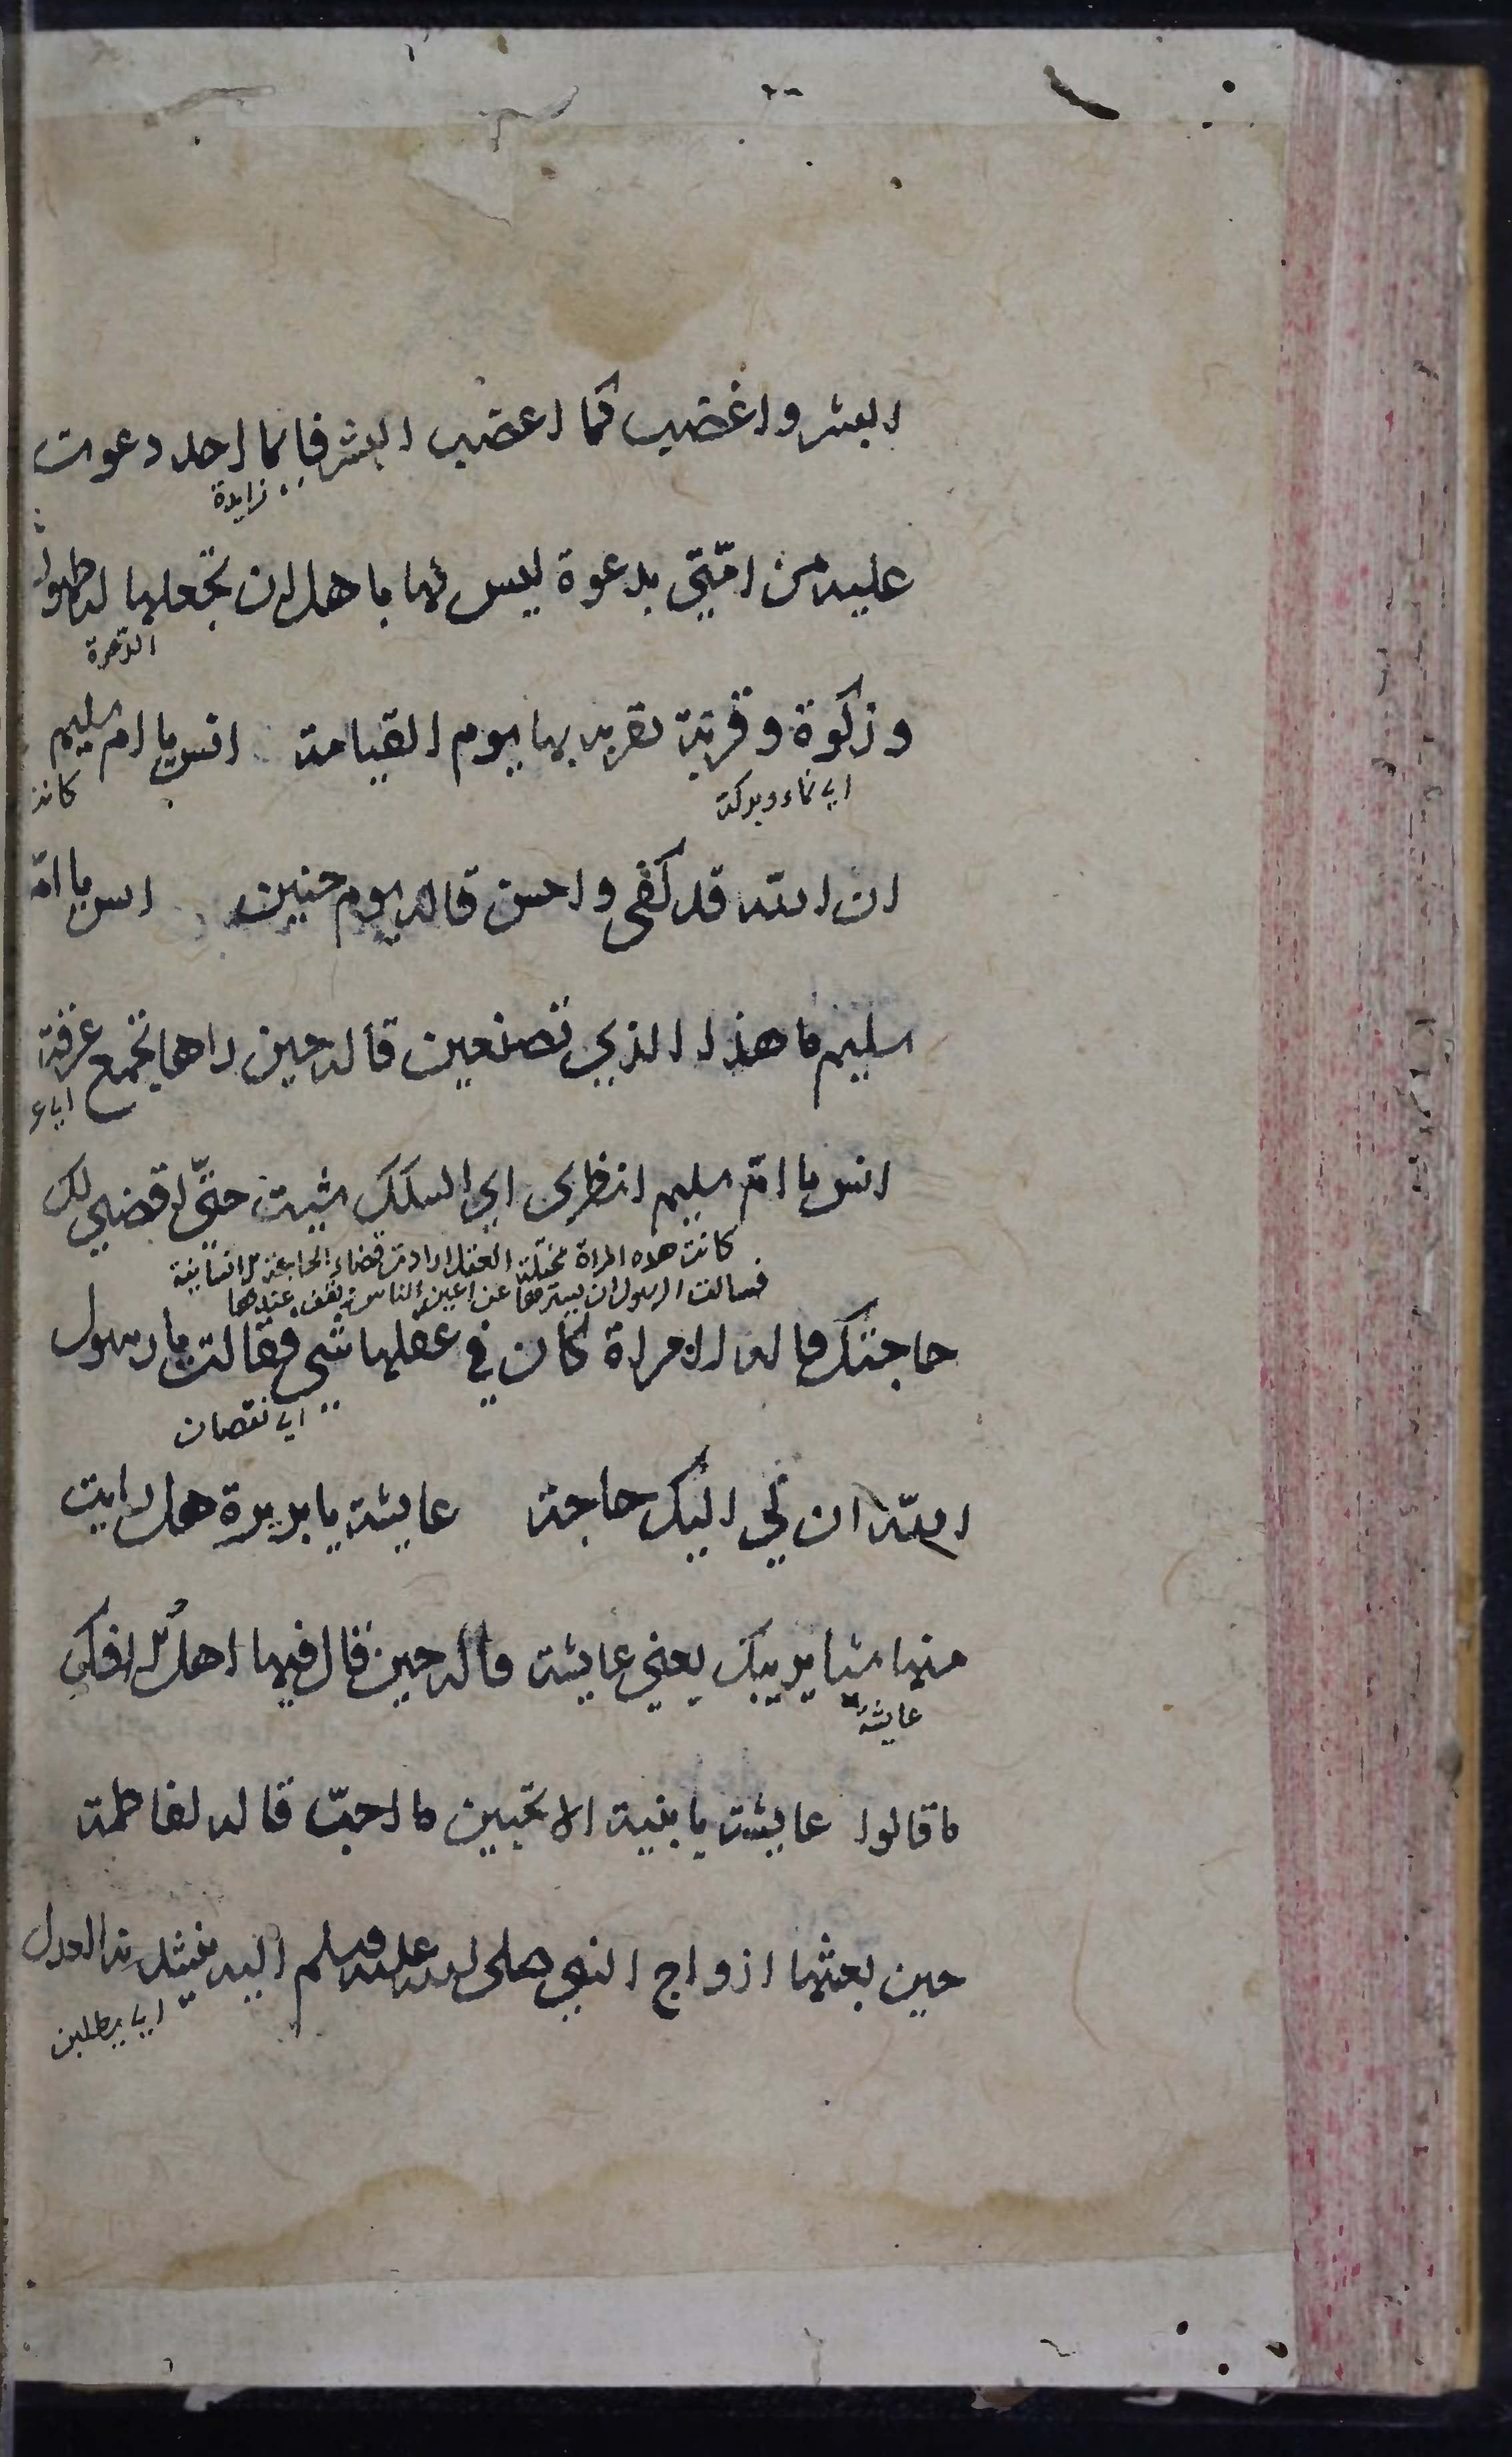 البشر واغضب كما اغضب البشر فايما احد دعوت
زايدة
عليه من امّتي بدعوة ليس لها باهل ان تجعلها له طهورا
الدعوة
وزكوة وقربة تقربه بها يوم القيامة انس يا ام سليم
اي نماء وبركة
ان الله قد كفى واحسن قاله يوم حنين انس يا ام
سليم ما هذا الذي تصنعين قاله حين راها تجمع عرقه
انس يا ام سليم انظري اي السكك شيت حتّى اقضي لك
كانت هذه المراة مختلة العقل ارادت قضاء الحاجة
فسالت الرسول ان يسترها عن اعين الناس يقف عندها
حاجتك قاله لامراة كان في عقلها شي فقالت يا رسول
اي نقصان
الله ان لي اليك حاجة عايشة يا بريرة هل رايت
منها شيا يريبك يعني عايشة قاله حين قال فيها اهل الافك
عايشة
ما قالوا عايشة يا بنية الا تحبين ما احبّ قاله لفاطمة
حين بعثها ازواج النبي صلى الله عليه وسلم اليه ينشدنه العدل
اي يطلبن